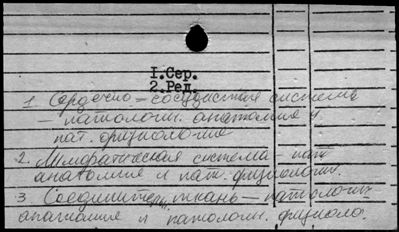 I.Сер.
2.Ред.
1. Сердечно-сосудистая система
— патологич. анатомия и
пат. физиология
2. Лимфатическая система - пат.
анатомия и пат. физиологич.
3. Соединительн. ткань — патологич.
анатомия и патологич. физиоло.